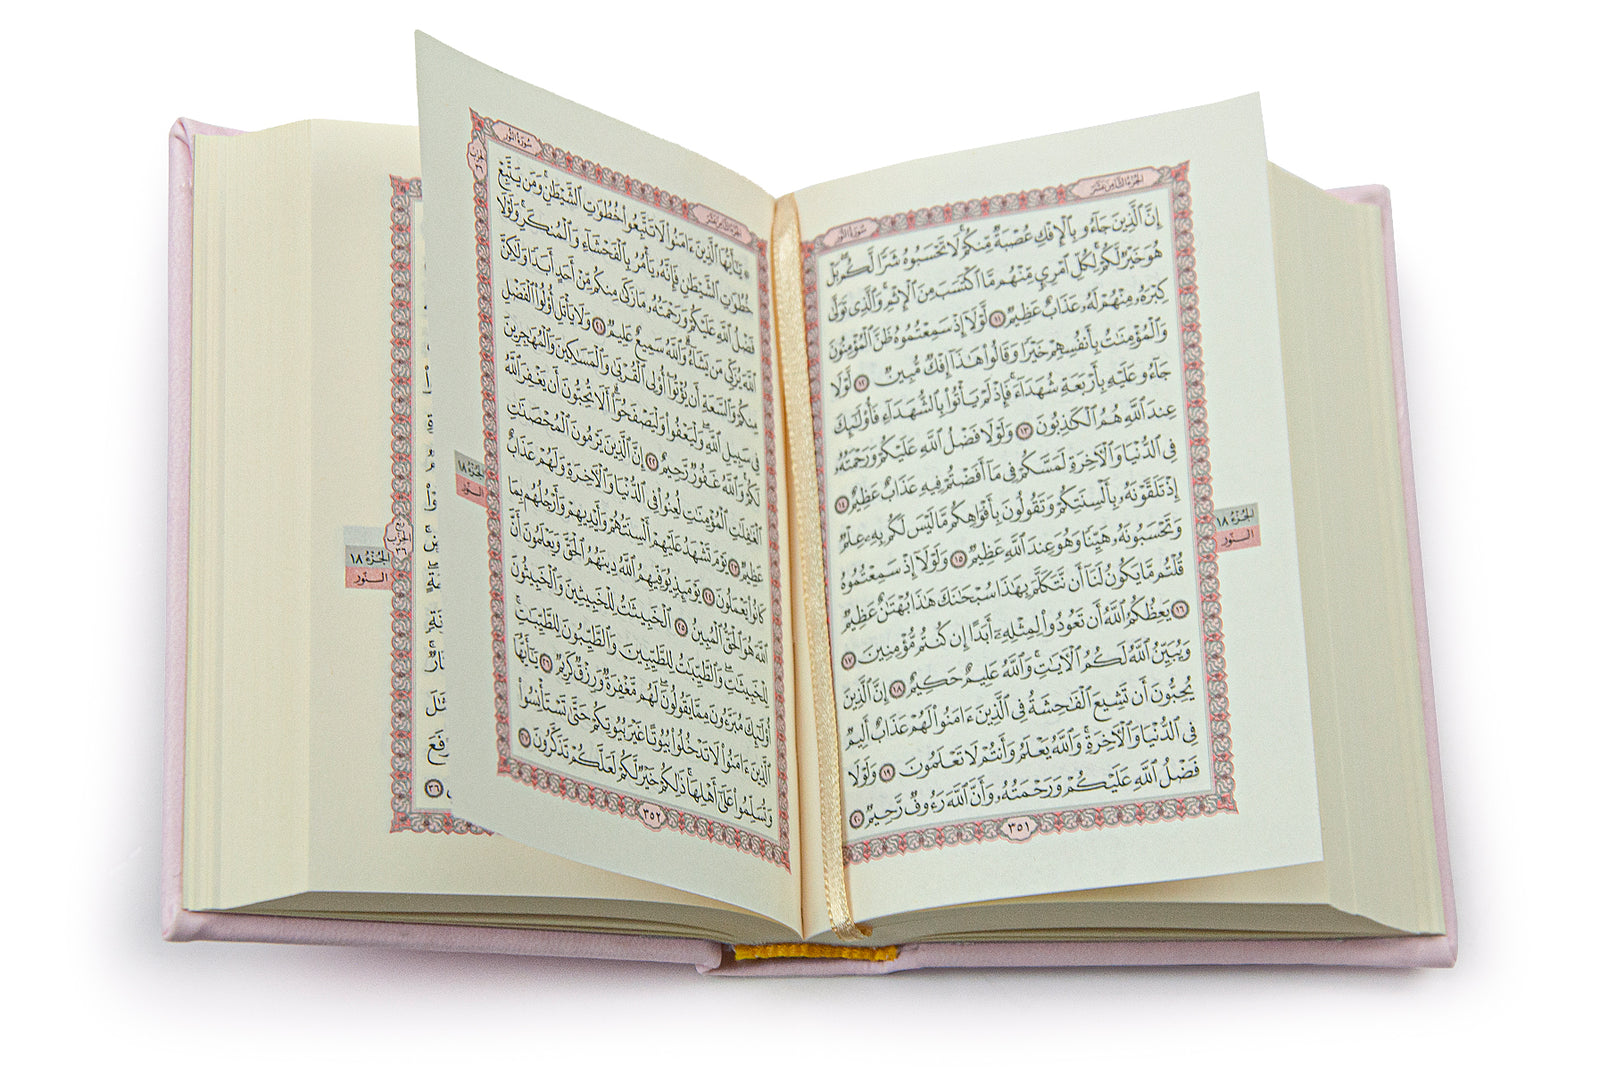 الجزء الثامن عشر
سورة النور
إِنَّ ٱلَّذِينَ جَآءُو بِٱلْإِفْكِ عُصْبَةٌ مِّنكُمْ ۚ لَا تَحْسَبُوهُ شَرًّا لَّكُم ۖ بَلْ
هُوَ خَيْرٌ لَّكُمْ ۚ لِكُلِّ ٱمْرِئٍ مِّنْهُم مَّا ٱكْتَسَبَ مِنَ ٱلْإِثْمِ ۚ وَٱلَّذِى تَوَلَّىٰ
كِبْرَهُۥ مِنْهُمْ لَهُۥ عَذَابٌ عَظِيمٌ ١١ لَّوْلَآ إِذْ سَمِعْتُمُوهُ ظَنَّ ٱلْمُؤْمِنُونَ
وَٱلْمُؤْمِنَٰتُ بِأَنفُسِهِمْ خَيْرًا وَقَالُوا۟ هَٰذَآ إِفْكٌ مُّبِينٌ ١٢ لَّوْلَا
جَآءُو عَلَيْهِ بِأَرْبَعَةِ شُهَدَآءَ ۚ فَإِذْ لَمْ يَأْتُوا۟ بِٱلشُّهَدَآءِ فَأُو۟لَٰٓئِكَ
عِندَ ٱللَّهِ هُمُ ٱلْكَٰذِبُونَ ١٣ وَلَوْلَا فَضْلُ ٱللَّهِ عَلَيْكُمْ وَرَحْمَتُهُۥ
فِى ٱلدُّنْيَا وَٱلْءَاخِرَةِ لَمَسَّكُمْ فِى مَآ أَفَضْتُمْ فِيهِ عَذَابٌ عَظِيمٌ ١٤
إِذْ تَلَقَّوْنَهُۥ بِأَلْسِنَتِكُمْ وَتَقُولُونَ بِأَفْوَاهِكُم مَّا لَيْسَ لَكُم بِهِۦ عِلْمٌ
وَتَحْسَبُونَهُۥ هَيِّنًا وَهُوَ عِندَ ٱللَّهِ عَظِيمٌ ١٥ وَلَوْلَآ إِذْ سَمِعْتُمُوهُ
قُلْتُم مَّا يَكُونُ لَنَآ أَن نَّتَكَلَّمَ بِهَٰذَا سُبْحَٰنَكَ هَٰذَا بُهْتَٰنٌ عَظِيمٌ
١٦ يَعِظُكُمُ ٱللَّهُ أَن تَعُودُوا۟ لِمِثْلِهِۦٓ أَبَدًا إِن كُنتُم مُّؤْمِنِينَ ١٧
وَيُبَيِّنُ ٱللَّهُ لَكُمُ ٱلْءَايَٰتِ ۚ وَٱللَّهُ عَلِيمٌ حَكِيمٌ ١٨ إِنَّ ٱلَّذِينَ
يُحِبُّونَ أَن تَشِيعَ ٱلْفَٰحِشَةُ فِى ٱلَّذِينَ ءَامَنُوا۟ لَهُمْ عَذَابٌ أَلِيمٌ
فِى ٱلدُّنْيَا وَٱلْءَاخِرَةِ ۚ وَٱللَّهُ يَعْلَمُ وَأَنتُمْ لَا تَعْلَمُونَ ١٩ وَلَوْلَا
فَضْلُ ٱللَّهِ عَلَيْكُمْ وَرَحْمَتُهُۥ وَأَنَّ ٱللَّهَ رَءُوفٌ رَّحِيمٌ ٢٠
٣٥١
الجزء ١٨
النور
الجزء الثامن عشر
سورة النور
الحزب ٣٦
۞ يَٰٓأَيُّهَا ٱلَّذِينَ ءَامَنُوا۟ لَا تَتَّبِعُوا۟ خُطُوَٰتِ ٱلشَّيْطَٰنِ ۚ وَمَن يَتَّبِعْ
خُطُوَٰتِ ٱلشَّيْطَٰنِ فَإِنَّهُۥ يَأْمُرُ بِٱلْفَحْشَآءِ وَٱلْمُنكَرِ ۚ وَلَوْلَا
فَضْلُ ٱللَّهِ عَلَيْكُمْ وَرَحْمَتُهُۥ مَا زَكَىٰ مِنكُم مِّنْ أَحَدٍ أَبَدًا وَلَٰكِنَّ
ٱللَّهَ يُزَكِّى مَن يَشَآءُ ۗ وَٱللَّهُ سَمِيعٌ عَلِيمٌ ٢١ وَلَا يَأْتَلِ أُو۟لُوا۟ ٱلْفَضْلِ
مِنكُمْ وَٱلسَّعَةِ أَن يُؤْتُوٓا۟ أُو۟لِى ٱلْقُرْبَىٰ وَٱلْمَسَٰكِينَ وَٱلْمُهَٰجِرِينَ
فِى سَبِيلِ ٱللَّهِ ۖ وَلْيَعْفُوا۟ وَلْيَصْفَحُوٓا۟ ۗ أَلَا تُحِبُّونَ أَن يَغْفِرَ ٱللَّهُ
لَكُمْ ۗ وَٱللَّهُ غَفُورٌ رَّحِيمٌ ٢٢ إِنَّ ٱلَّذِينَ يَرْمُونَ ٱلْمُحْصَنَٰتِ
ٱلْغَٰفِلَٰتِ ٱلْمُؤْمِنَٰتِ لُعِنُوا۟ فِى ٱلدُّنْيَا وَٱلْءَاخِرَةِ وَلَهُمْ عَذَابٌ
عَظِيمٌ ٢٣ يَوْمَ تَشْهَدُ عَلَيْهِمْ أَلْسِنَتُهُمْ وَأَيْدِيهِمْ وَأَرْجُلُهُم بِمَا
كَانُوا۟ يَعْمَلُونَ ٢٤ يَوْمَئِذٍ يُوَفِّيهِمُ ٱللَّهُ دِينَهُمُ ٱلْحَقَّ وَيَعْلَمُونَ أَنَّ
ٱللَّهَ هُوَ ٱلْحَقُّ ٱلْمُبِينُ ٢٥ ٱلْخَبِيثَٰتُ لِلْخَبِيثِينَ وَٱلْخَبِيثُونَ
لِلْخَبِيثَٰتِ ۖ وَٱلطَّيِّبَٰتُ لِلطَّيِّبِينَ وَٱلطَّيِّبُونَ لِلطَّيِّبَٰتِ ۚ
أُو۟لَٰٓئِكَ مُبَرَّءُونَ مِمَّا يَقُولُونَ ۖ لَهُم مَّغْفِرَةٌ وَرِزْقٌ كَرِيمٌ ٢٦ يَٰٓأَيُّهَا
ٱلَّذِينَ ءَامَنُوا۟ لَا تَدْخُلُوا۟ بُيُوتًا غَيْرَ بُيُوتِكُمْ حَتَّىٰ تَسْتَأْنِسُوا۟
وَتُسَلِّمُوا۟ عَلَىٰٓ أَهْلِهَا ۚ ذَٰلِكُمْ خَيْرٌ لَّكُمْ لَعَلَّكُمْ تَذَكَّرُونَ ٢٧
٣٥٢
الجزء ١٨
النور
الجزء ١٨
النور